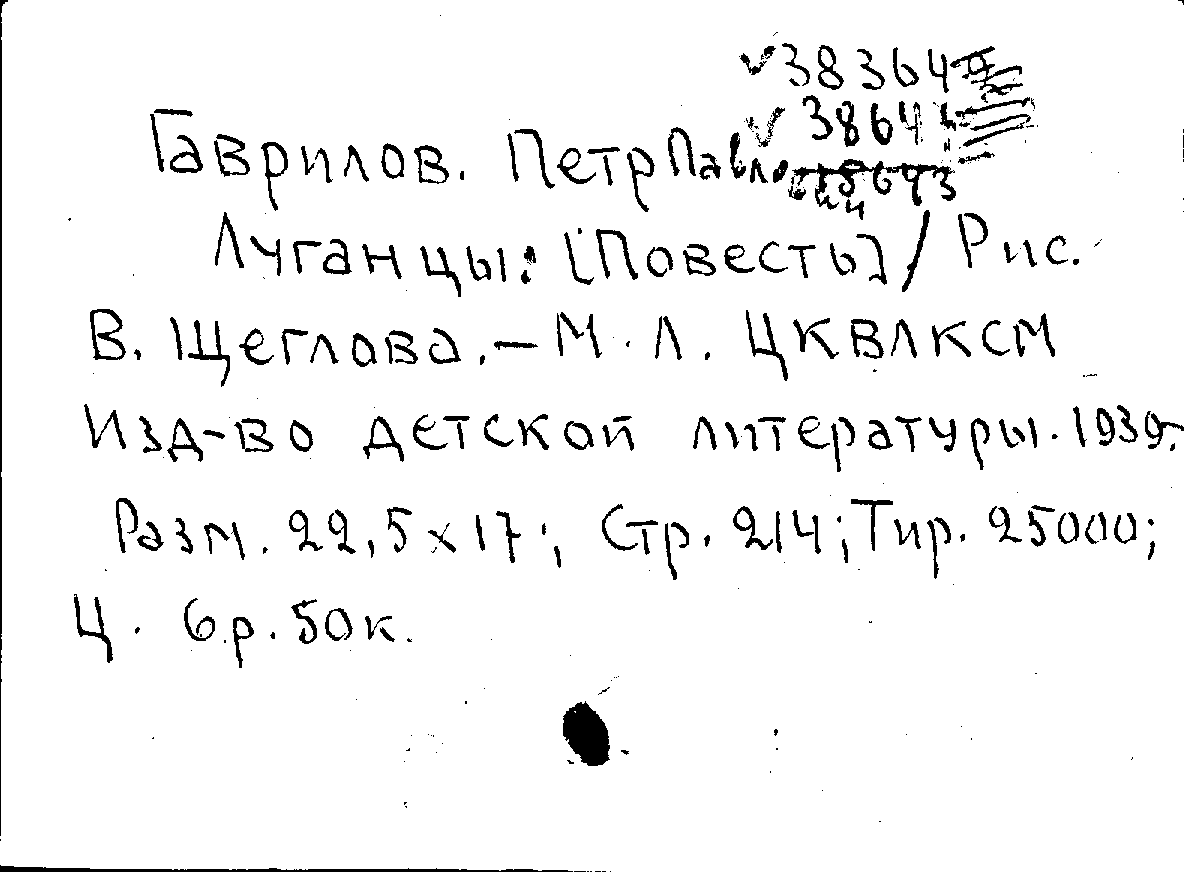 38364
Гаврилов. Петр Павлович
Луганцы: [Повесть] / Рис.
В. Щеглова. – М. Л. ЦКВЛКСМ
Изд-во детской литературы. 1939г.
Разм. 22,5 х 17; Стр. 214; Тир. 25000;
Ц. 6р. 50к.